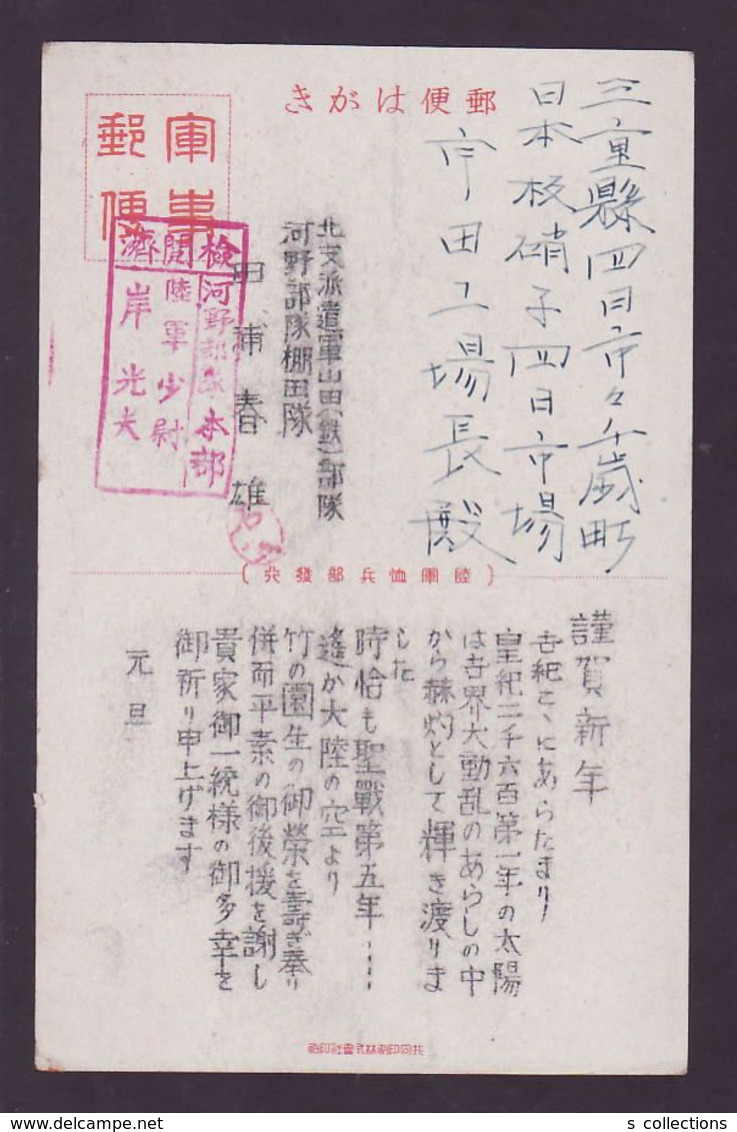 郵便はがき
軍事
郵便
三重縣四日市々千歳町
日本板硝子四日市場
宇田工場長殿
北支派遣軍山田(鉄)部隊
河野部隊棚田隊
田浦春雄
檢閲濟
河野部隊本部
陸軍少尉
岸光夫
(陸軍恤兵部發行)
謹賀新年
世紀こゝにあらたまり
皇紀二千六百第一年の太陽
は世界大動乱のあらしの中
から赫灼として輝き渡りま
した
時恰も聖戰第五年‥‥
遙か大陸の空より
竹の園生の御榮を壽ぎ奉り
併而平素の御後援を謝し
貴家御一統様の御多幸を
御祈り申上げます
元旦
共同印刷株式會社印刷
s collections